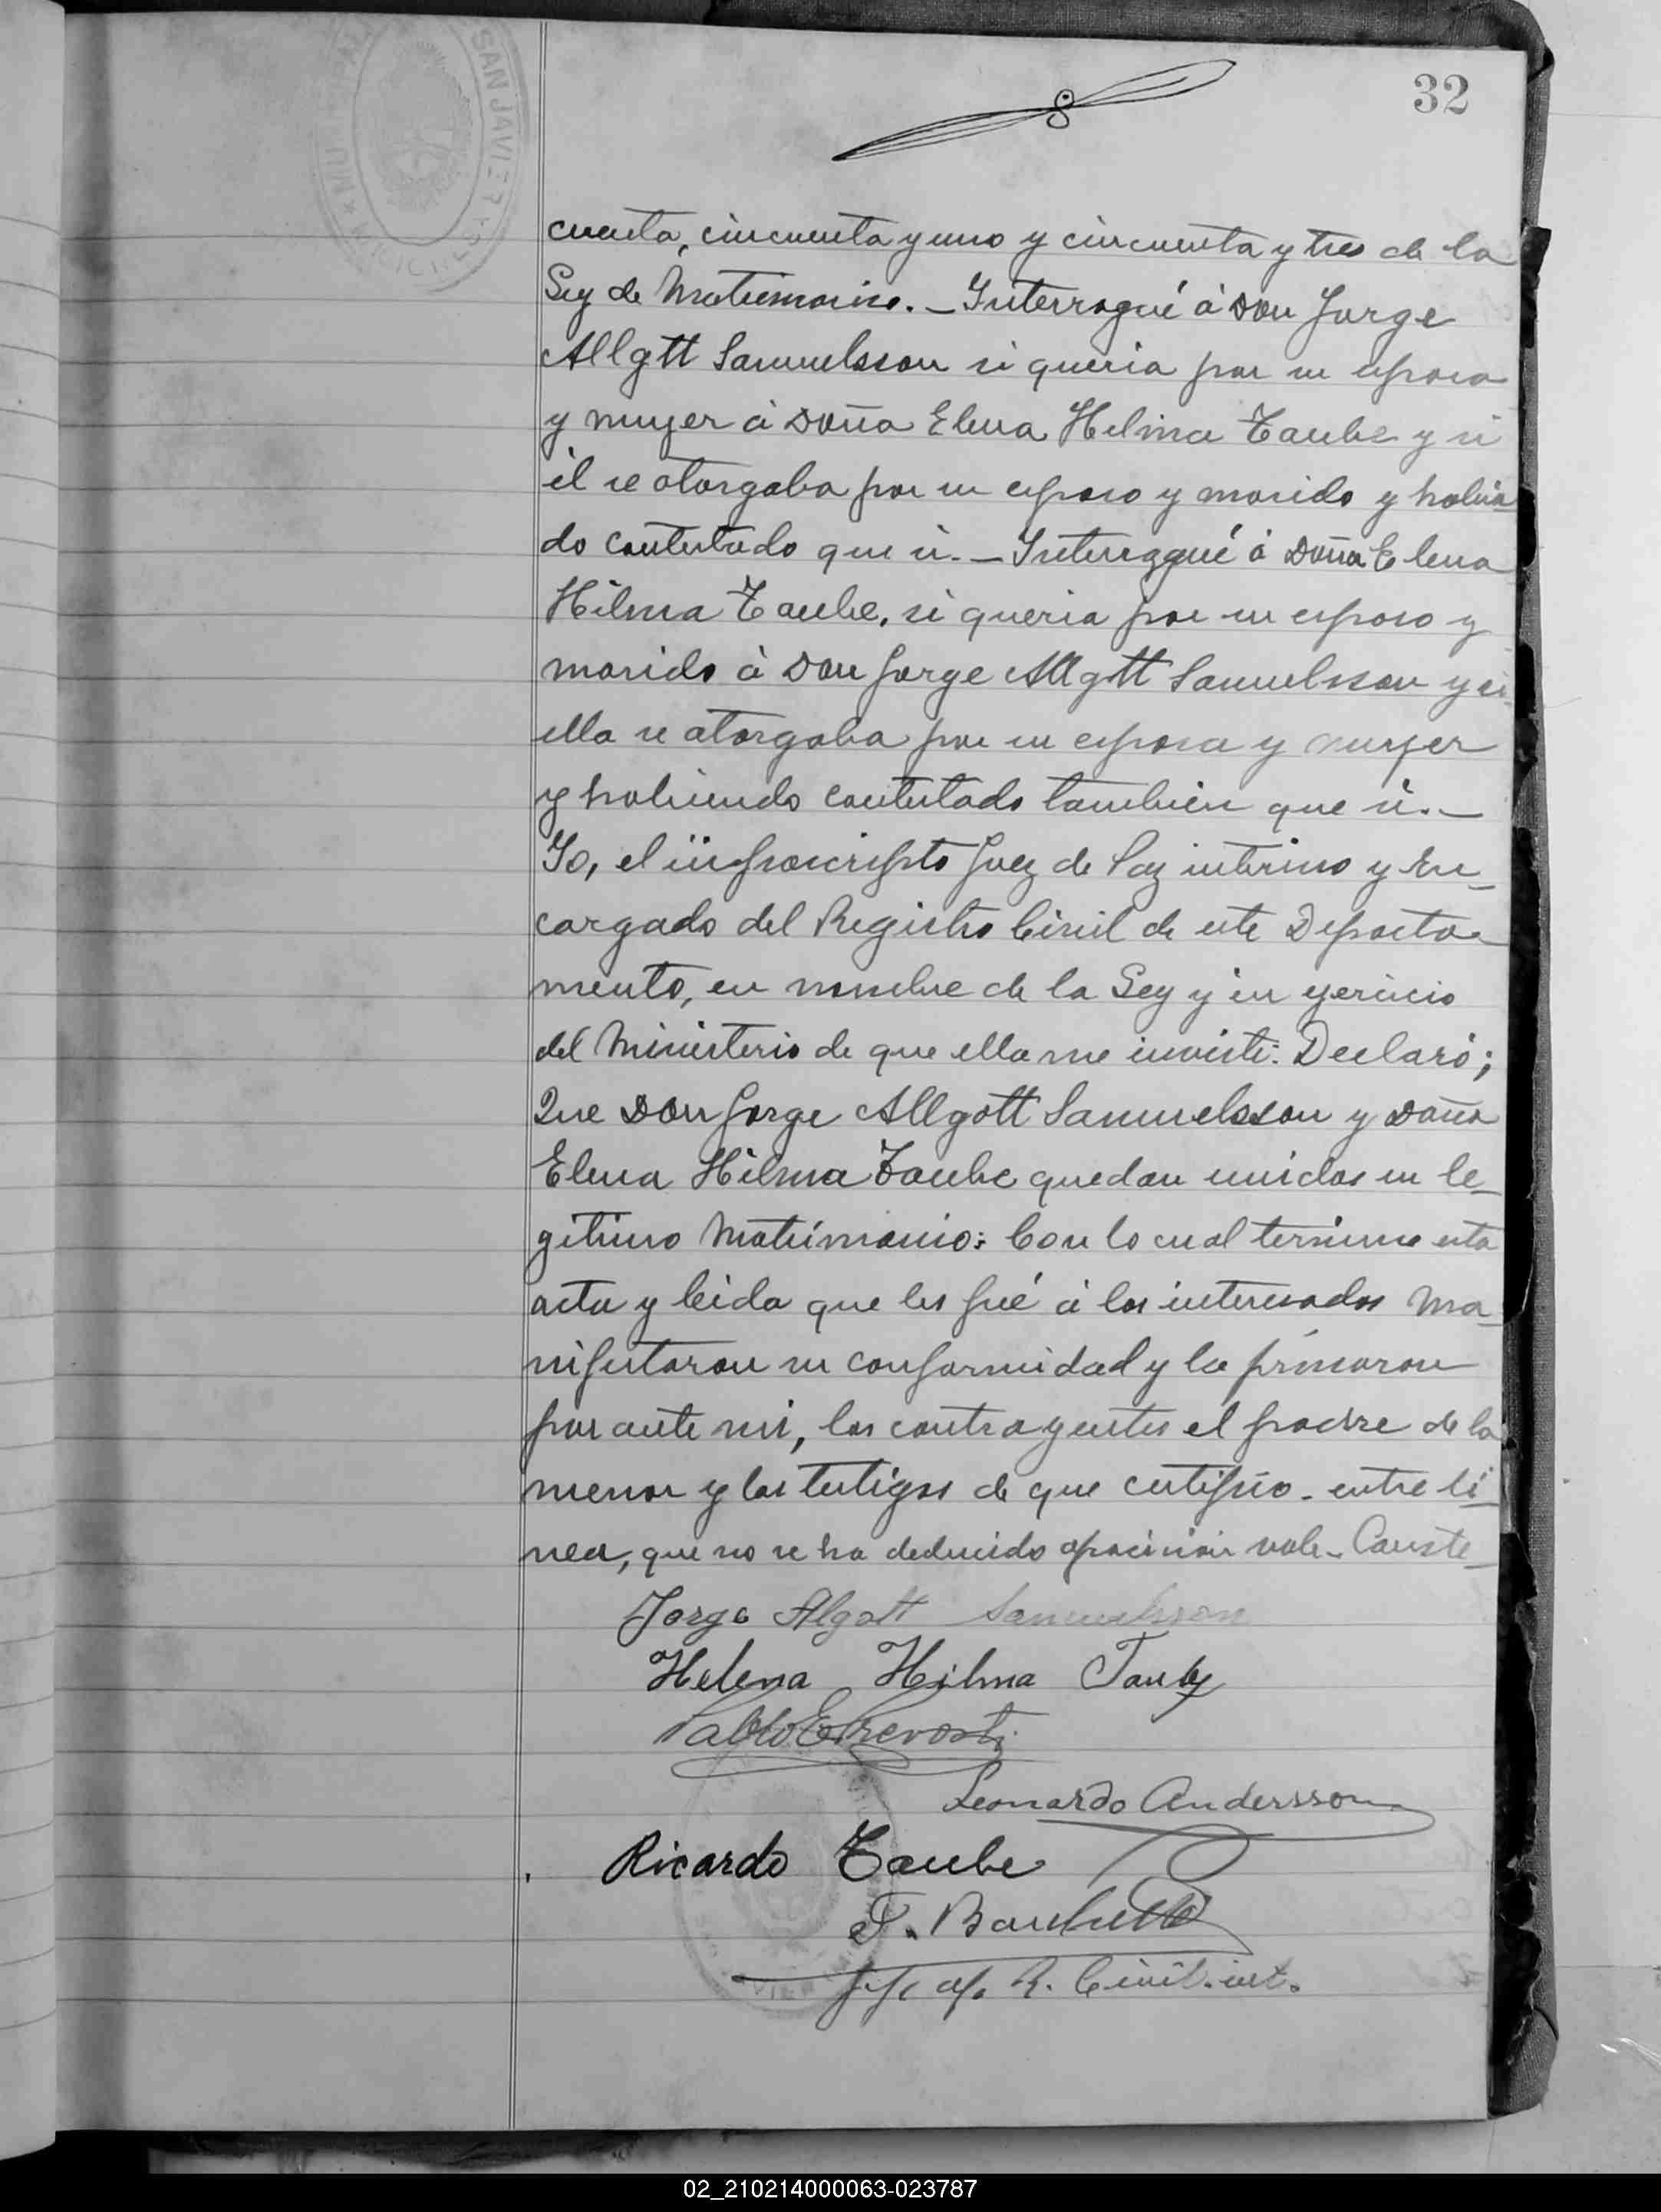 32
MUNICIPAL SAN JAVIER
cuenta, cincuenta y uno y cincuenta y tres de la
Ley de Matrimonio. — Interrogué á Don Jorge
Allgtt Samuelsson si queria por su esposa
y mujer á Doña Elena Helma Taube y si
él se otorgaba por su esposo y marido y habien
do contestado que si. — Interrogué á Doña Elena
Hilma Taube, si queria por su esposo y
marido á Don Jorge Allgtt Samuelsson y si
ella se otorgaba por su esposa y mujer
y habiendo contestado tambien que si. —
Yo, el infrascripto Juez de Paz interino y En-
cargado del Registro Civil de este Departa-
mento, en nombre de la Ley y en ejercicio
del Ministerio de que ella me inviste: Declaró;
Que Don Jorge Allgott Samuelsson y Doña
Elena Hilma Taube quedan unidos en le-
gitimo Matrimonio: Con lo cual termino esta
acta y leida que les fué á los interesados ma-
nifestaron su conformidad y la firmaron
por ante mi, los contrayentes el padre de la
menor y los testigos de que certifico - entre lí-
nea, que no se ha deducido oposicion vale - Conste -
Jorge Algott Samuelsson
Helena Hilma Tauby
Pablo E Prevosti
Leonardo Andersson
Ricardo Taube
J.
R. Civil. int.
02_210214000063-023787